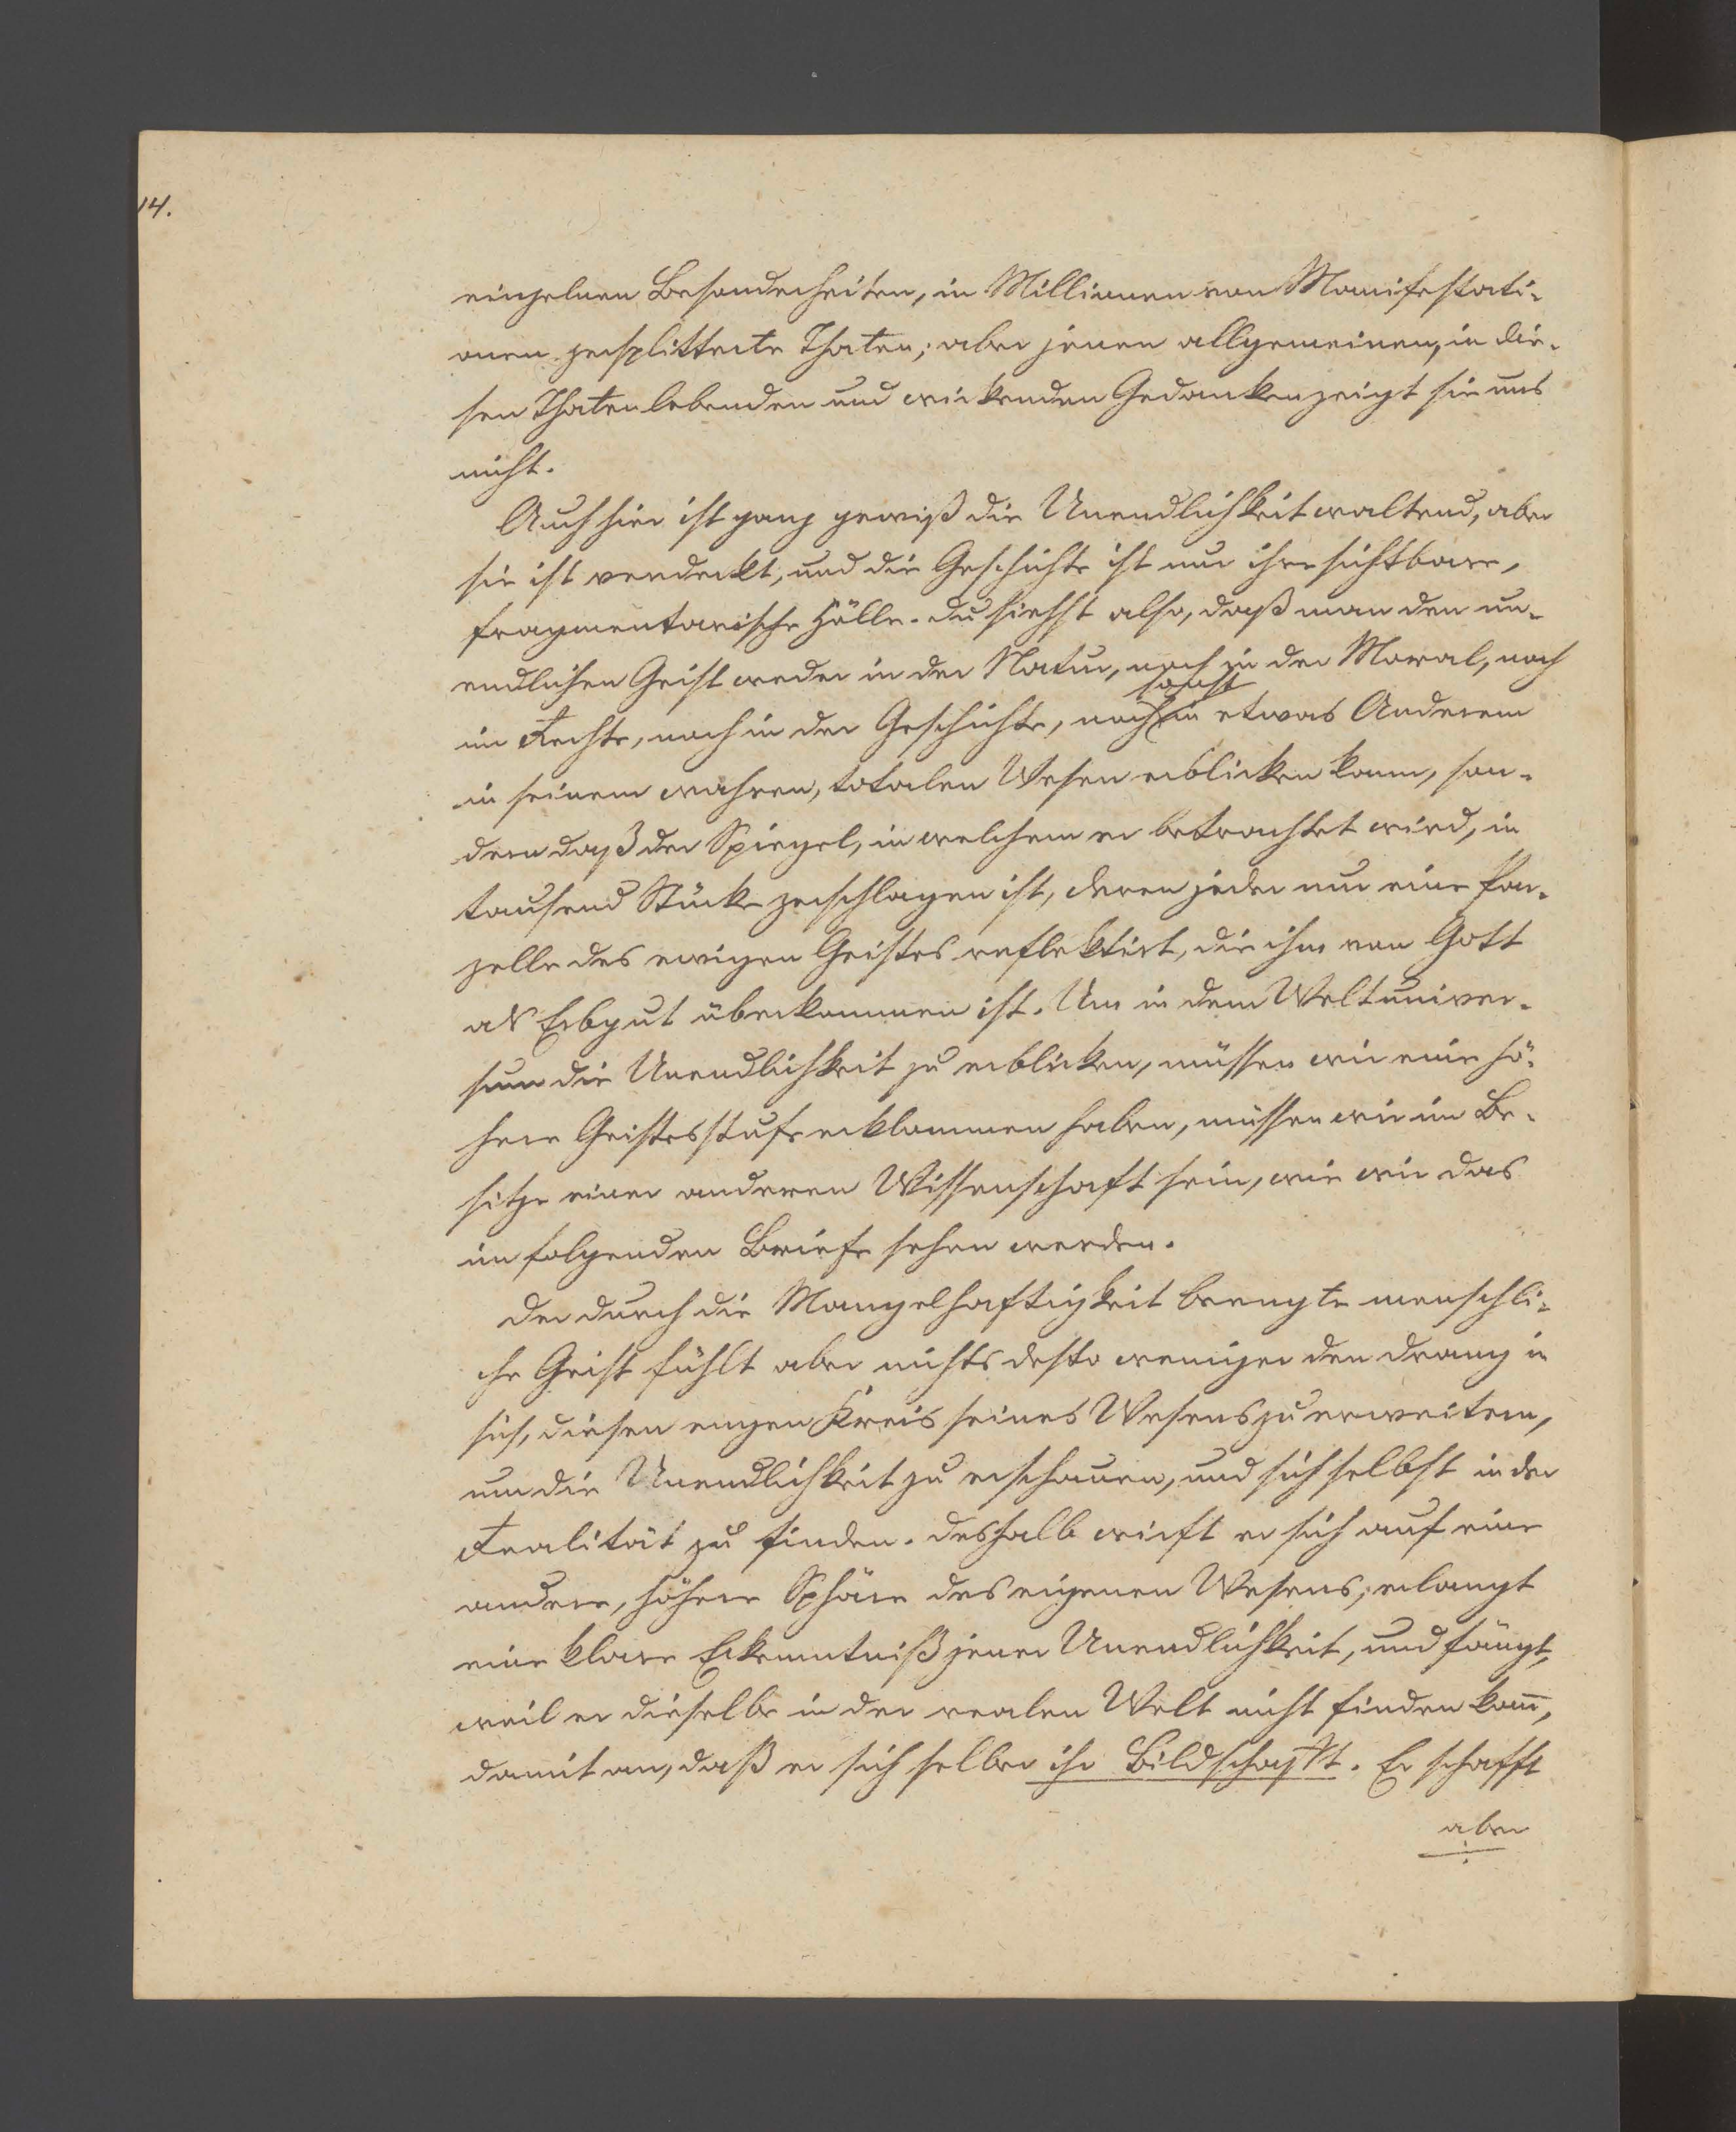 14.
einzelnen Besonderheiten, in Millionen von Manifestati-
onen zersplitterte Thaten; aber jenen allgemeinen, in die-
sen Thaten lebenden und wirkenden Gedanken zeigt sie uns
nicht.
Auch hier ist ganz gewiß die Unendlichkeit waltend, aber
sie ist verdeckt, und die Geschichte ist nur ihre sichtbare,
fragmentarische Hülle. Du siehst also, daß man den un-
endlichen Geist weder in der Natur, noch in der Moral, noch
sonst
im Rechte, noch in der Geschichte, noch in etwas Anderem
in seinem wahren, totalen Wesen erblicken kann, son-
dern daß der Spiegel, in welchem er betrachtet wird, in
tausend Stücke zerschlagen ist, deren jeder nur eine Par-
zelle des ewigen Geistes reflektirt, die ihm von Gott
als Erbgut überkommen ist. Um in dem Weltuniver-
sum die Unendlichkeit zu erblicken, müssen wir eine hö-
here Geistesstufe erklommen haben, müssen wir im Be-
sitze einer anderen Wissenschaft sein, wie wir das
im folgenden Briefe sehen werden.
Der durch die Mangelhaftigkeit beengte menschli-
che Geist fühlt aber nichts desto weniger den Drang in
sich, diesen engen Kreis seines Wesens zu erweitern,
um die Unendlichkeit zu erschauen, und sich selbst in der
Realität zu finden. Deshalb wirft er sich auf eine
andere, höhere Sphäre des eigenen Wesens, erlangt
eine klare Erkenntniß jener Unendlichkeit, und fängt,
weil er dieselbe in der realen Welt nicht finden kañ,
damit an, daß er sich selber ihr Bild schafft. Er schafft
aber